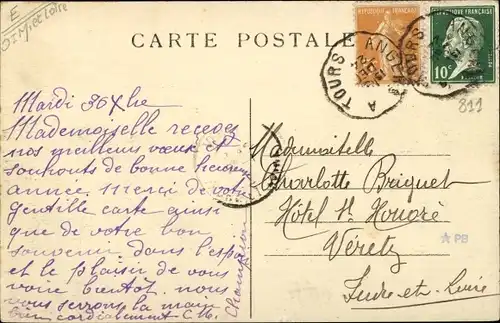 E
CARTE POSTALE
REPUBLIQUE FRANÇAISE
REPUBLIQUE FRANÇAISE
10c
TOURS A ANGERS
811
Mardi 30 Xbre
Mademoiselle recevez
nos meilleurs voeux et
souhouts de bonne heureuse
année. merci de votre
gentille carte ainsi
que de votre bon
souvenir dans l'espoir
et le plaisir de vous
voire bientôt. nous
vous serrons la main
bien cordialement C. M.
Champion
Mademoiselle
Charlotte Briquet
Hôtel St Honoré
Véretz
Indre-et-Loire
PB